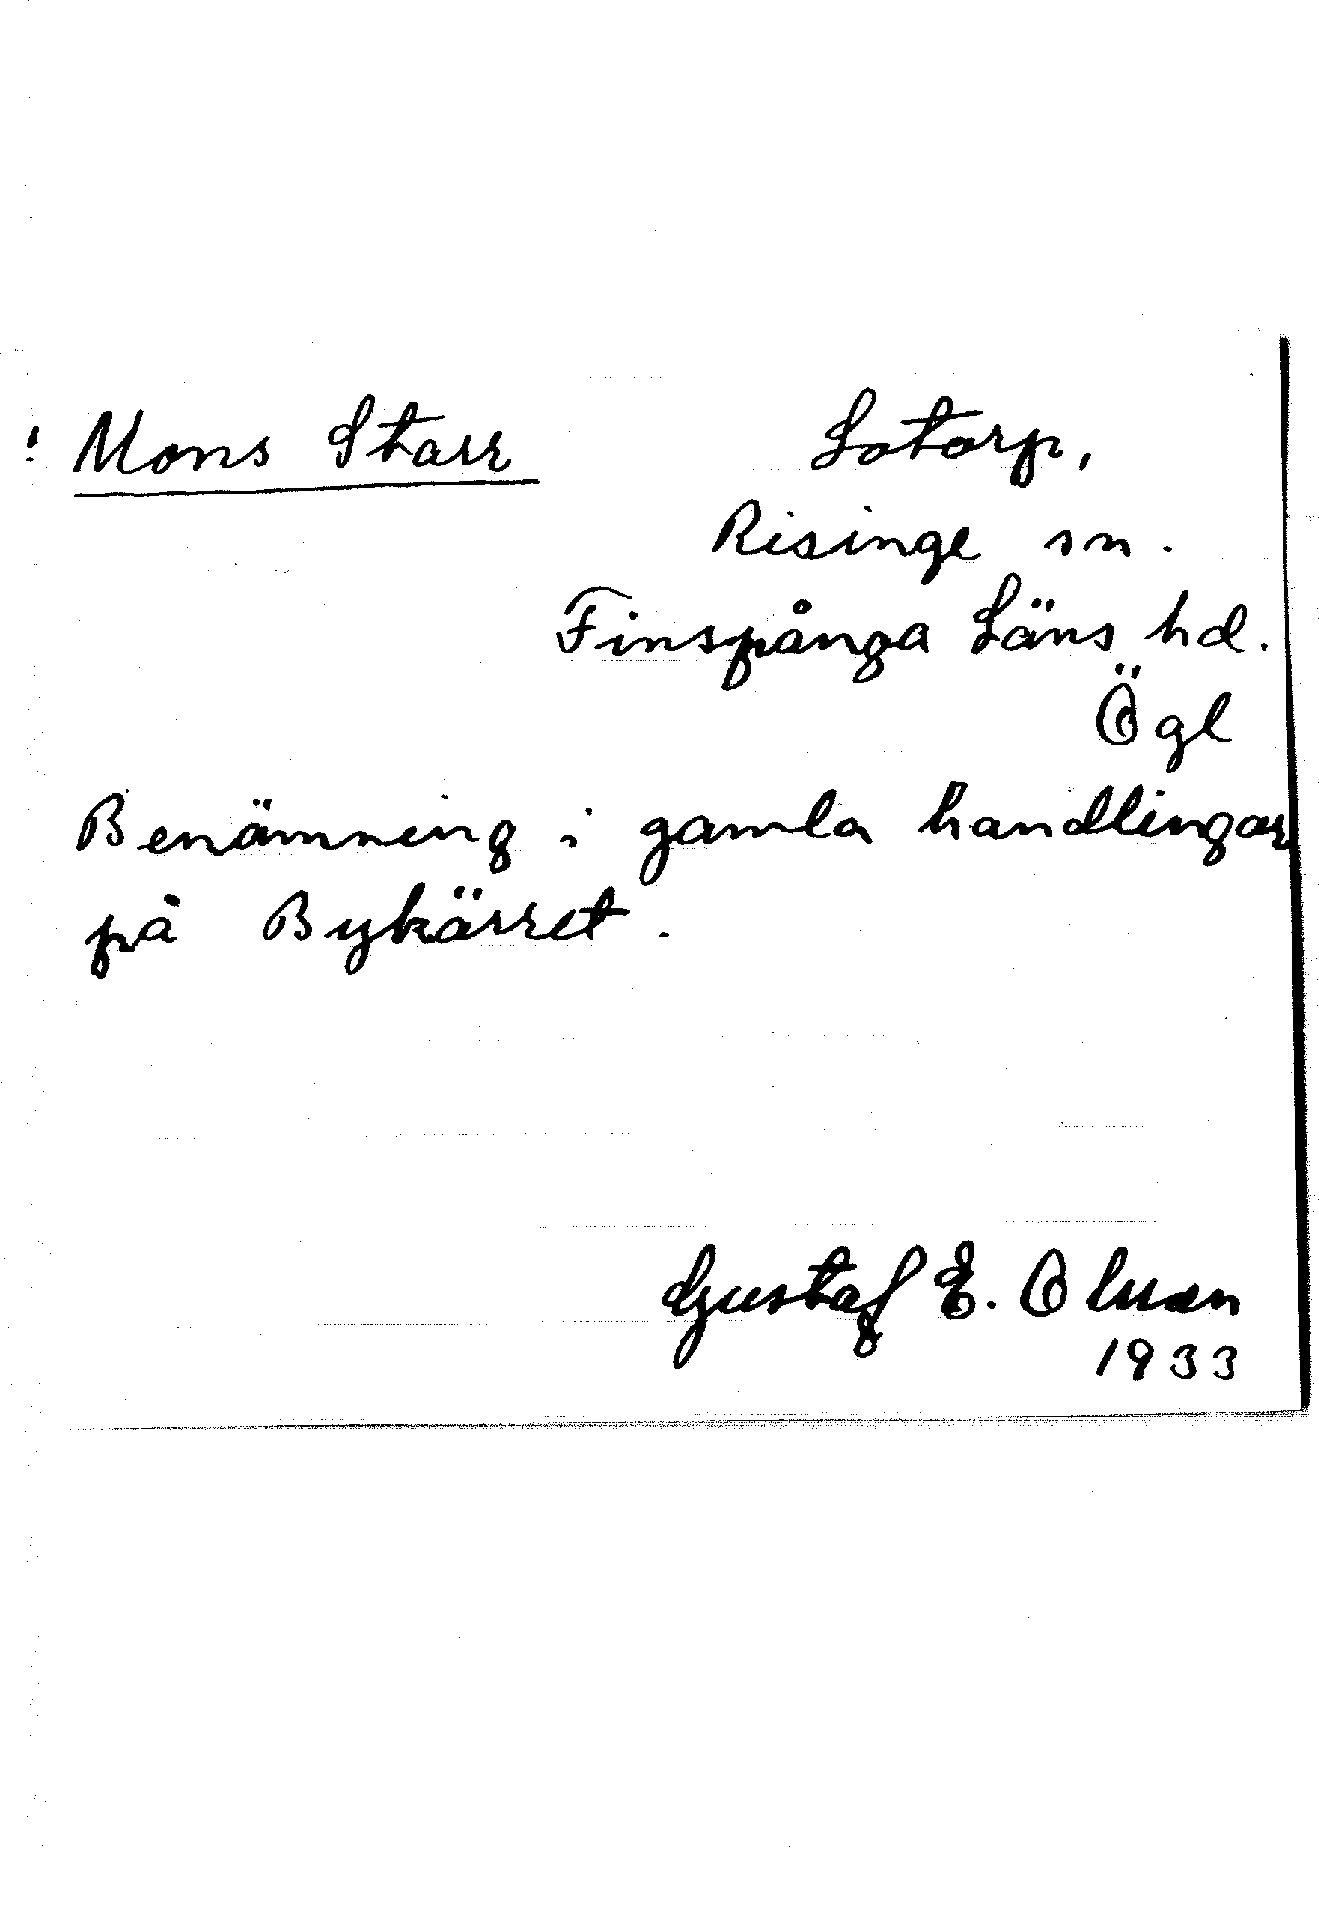 ! Mons Starr
Lotorp,
Risinge sn.
Finspånga Läns hd.
Ögl
Benämning i gamla handlingar
på Bykärret.
Gustaf E.
1933